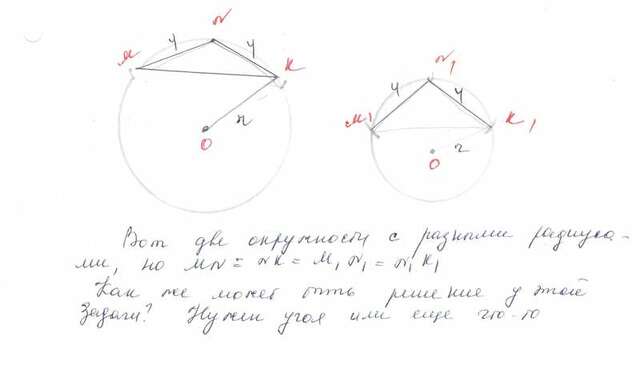 M 4 N 4 K
r
O
N1
4 4
M1 K1
O r
Вот две окружности с разными радиуса-
ми, но MN = NK = M1 N1 = N1 K1
Как же может быть решение у этой
задачи? Нужен угол или еще что-то